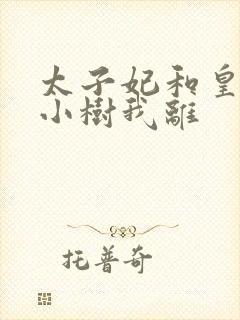 太子妃和皇
小樹我離
托普奇